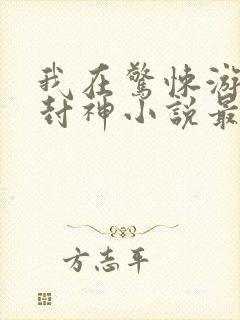 我在驚悚游
封神小說最
方志平